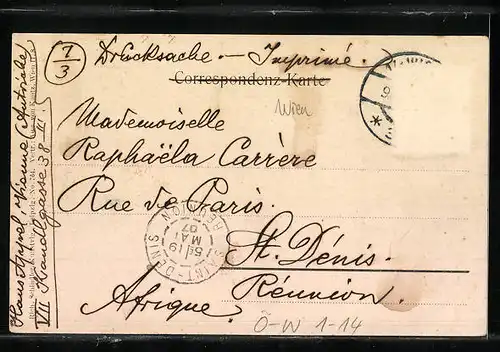 7/3
Drucksache. — Imprimé.
Correspondenz-Karte
Wien
Mademoiselle
Raphaëla Carrère
Rue de Paris.
St. Dénis.
Réunion.
Afrique.
SAINT-DENIS
RÉUNION
19
MAI
07
Ö-W 1-14
Vienne Autriche
VII Kandlgasse 38